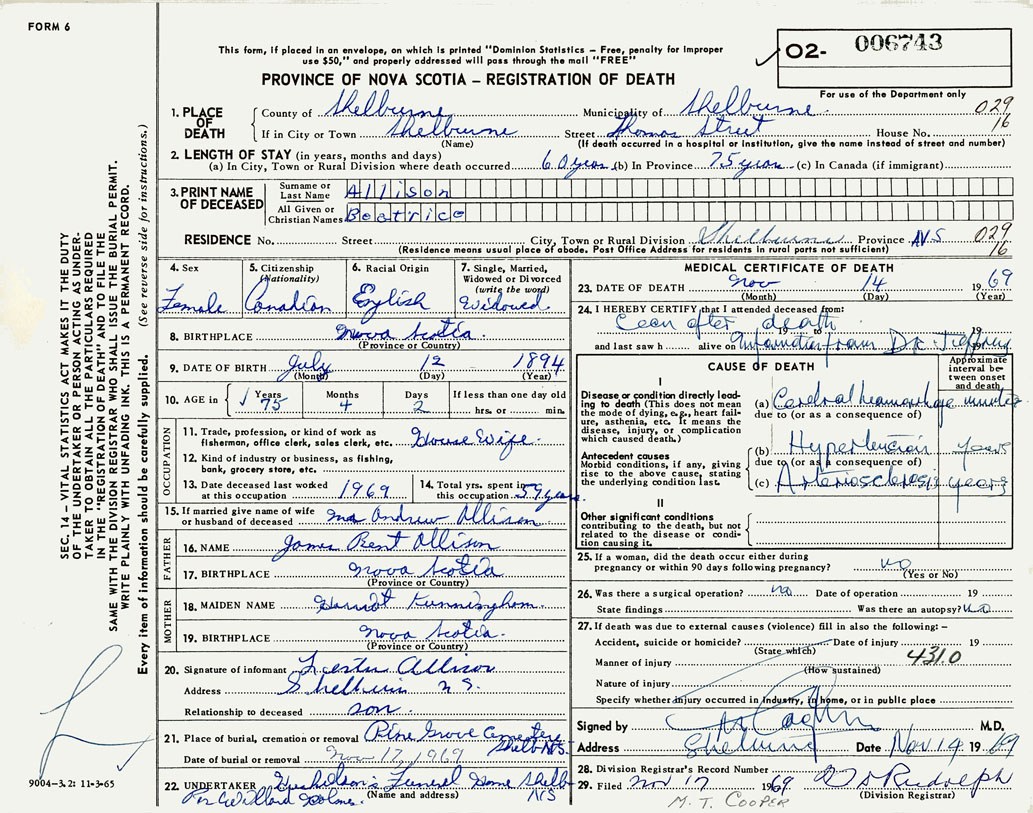 FORM 6
This form, if placed in an envelope, on which is printed "Dominion Statistics – Free, penalty for improper
use $50," and properly addressed will pass through the mail "FREE"
PROVINCE OF NOVA SCOTIA – REGISTRATION OF DEATH
02- 006743
For use of the Department only
1. PLACE OF DEATH
County of Shelburne Municipality of Shelburne 029
If in City or Town Shelburne Street Thomas Street House No. 16
(Name) (If death occurred in a hospital or institution, give the name instead of street and number)
2. LENGTH OF STAY (in years, months and days)
(a) In City, Town or Rural Division where death occurred 60 years (b) In Province 75 years (c) In Canada (if immigrant)
3. PRINT NAME OF DECEASED
Surname or Last Name Allison
All Given or Christian Names Beatrice
RESIDENCE No. Street City, Town or Rural Division Shelburne Province N.S 029
(Residence means usual place of abode. Post Office Address for residents in rural parts not sufficient) 16
4. Sex
Female
5. Citizenship (Nationality)
Canadian
6. Racial Origin
English
7. Single, Married, Widowed or Divorced (write the word)
Widowed
8. BIRTHPLACE Nova Scotia
(Province or Country)
9. DATE OF BIRTH July 12 1894
(Month) (Day) (Year)
10. AGE in Years Months Days If less than one day old
75 4 2 hrs. or min.
OCCUPATION
11. Trade, profession, or kind of work as
fisherman, office clerk, sales clerk, etc. House Wife
12. Kind of industry or business, as fishing,
bank, grocery store, etc.
13. Date deceased last worked
at this occupation 1969
14. Total yrs. spent in
this occupation 59 years
15. If married give name of wife
or husband of deceased Andrew Allison
FATHER
16. NAME James Allison
17. BIRTHPLACE Nova Scotia
(Province or Country)
MOTHER
18. MAIDEN NAME Harriot
19. BIRTHPLACE Nova Scotia
(Province or Country)
20. Signature of informant Allison
Address N.S.
Relationship to deceased son
21. Place of burial, cremation or removal Pine Grove Cemetery
Shelb N.S.
Date of burial or removal Nov 17, 1969
22. UNDERTAKER Funeral Home Shelb
(Name and address) N/S
for Willard
MEDICAL CERTIFICATE OF DEATH
23. DATE OF DEATH Nov 14 1969
(Month) (Day) (Year)
24. I HEREBY CERTIFY that I attended deceased from:
Seen after death
19 19
and last saw h alive on Information from Dr. 19
CAUSE OF DEATH
Approximate interval between onset and death
I
Disease or condition directly leading to death (This does not mean
the mode of dying, e.g., heart failure, asthenia, etc. It means the
disease, injury, or complication
which caused death.)
(a) Cerebral heamorrhage minutes
due to (or as a consequence of)
Antecedent causes
Morbid conditions, if any, giving
rise to the above cause, stating
the underlying condition last.
(b) Hypertension years
due to (or as a consequence of)
(c) Arteriosclerosis years
II
Other significant conditions
contributing to the death, but not
related to the disease or condition causing it.
25. If a woman, did the death occur either during
pregnancy or within 90 days following pregnancy? no
(Yes or No)
26. Was there a surgical operation? no Date of operation 19
State findings Was there an autopsy? no
27. If death was due to external causes (violence) fill in also the following: –
Accident, suicide or homicide? Date of injury 19
(State which) 431.0
Manner of injury
(How sustained)
Nature of injury
Specify whether injury occurred in industry, in home, or in public place
Signed by M.D.
Address Shelburne Date Nov 14 1969
28. Division Registrar's Record Number
29. Filed Nov 17 1969 Rudolph
(Division Registrar)
M. T. COOPER
SEC. 14 – VITAL STATISTICS ACT MAKES IT THE DUTY
OF THE UNDERTAKER OR PERSON ACTING AS UNDERTAKER TO OBTAIN ALL THE PARTICULARS REQUIRED
IN THE "REGISTRATION OF DEATH" AND TO FILE THE
SAME WITH THE DIVISION REGISTRAR WHO SHALL ISSUE THE BURIAL PERMIT.
WRITE PLAINLY WITH UNFADING INK. THIS IS A PERMANENT RECORD.
Every item of information should be carefully supplied. (See reverse side for instructions.)
9004–3.2: 11-3-65